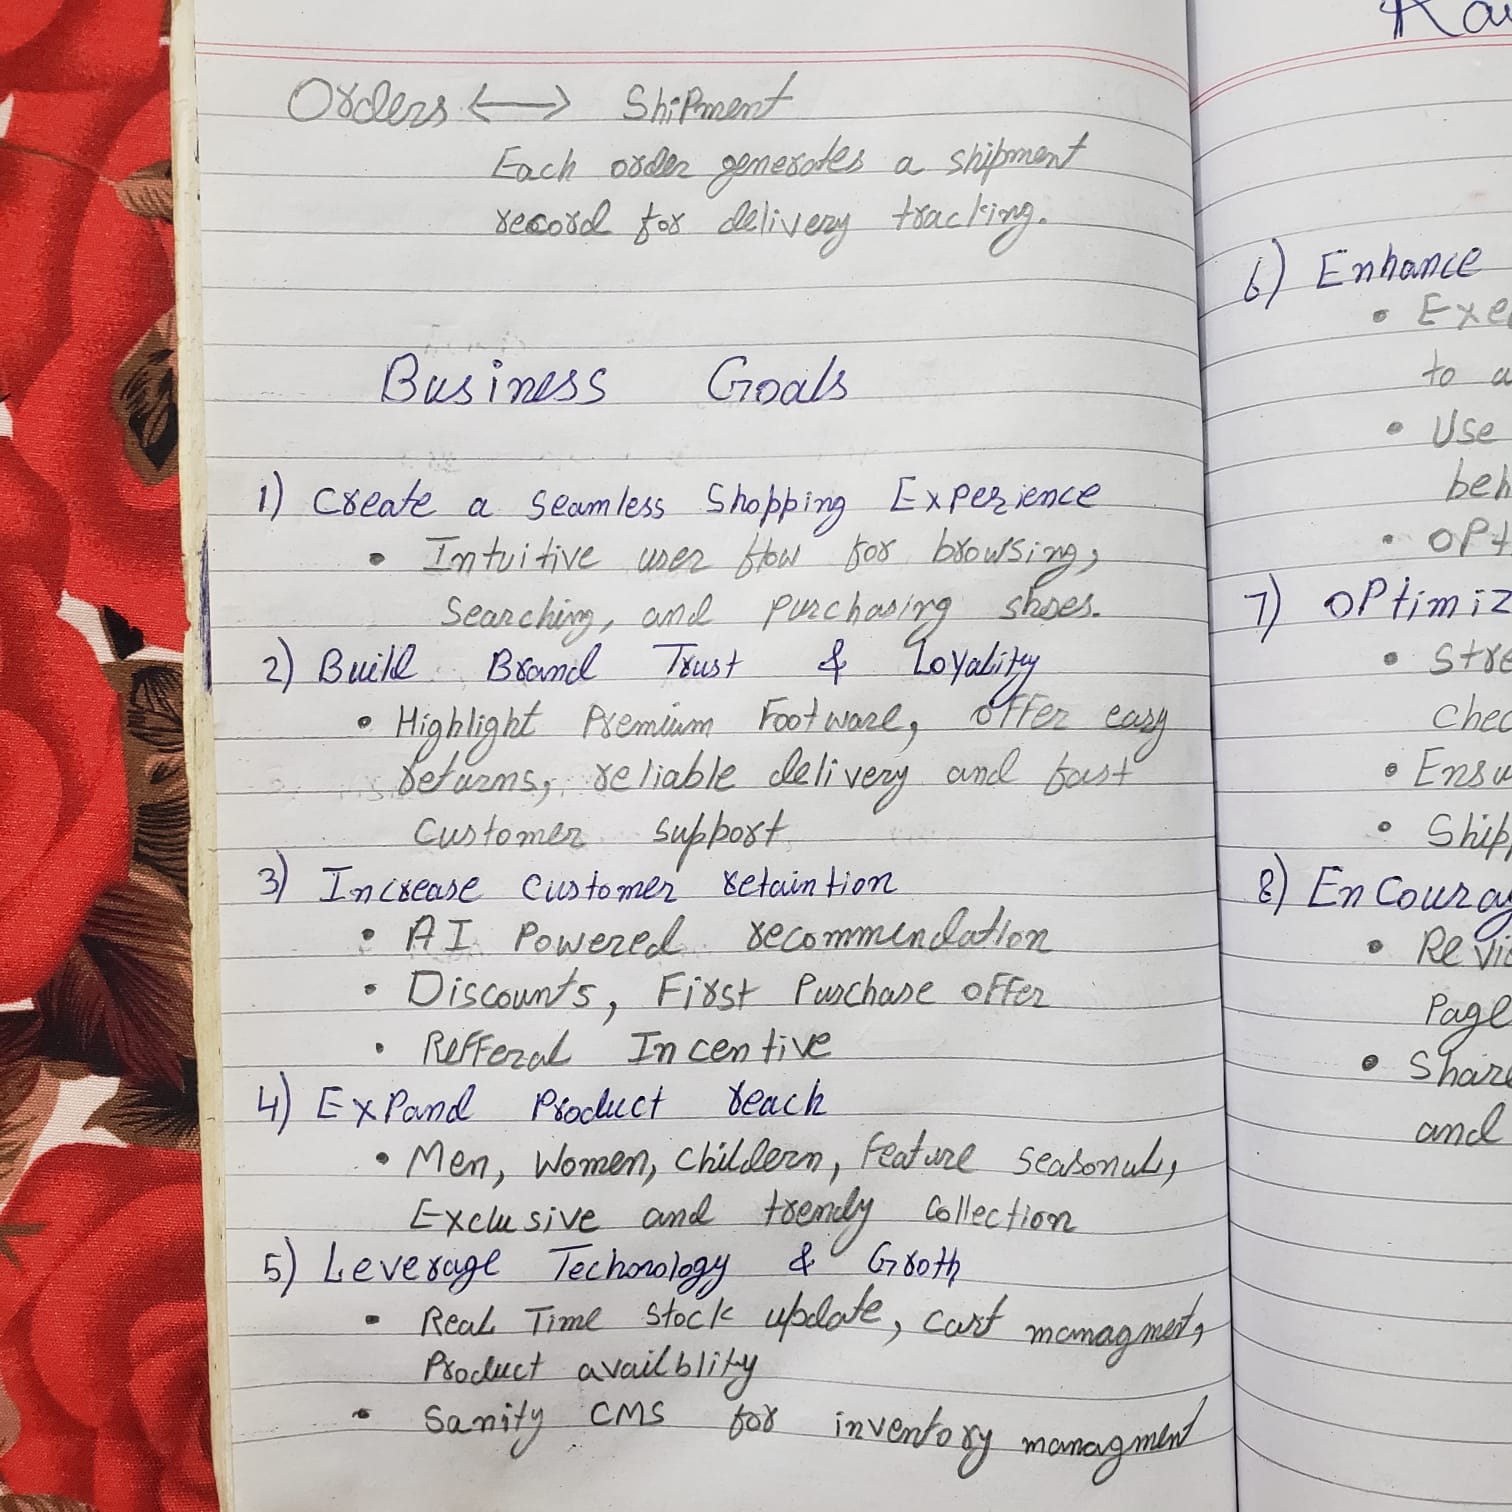 Orders <--> Shipment
Each order generates a shipment
record for delivery tracking.
Business Goals
1) Create a Seamless Shopping Experience
• Intuitive user flow for browsing,
Searching, and purchasing shoes.
2) Build Brand Trust & Loyality
• Highlight Premium Footware, offer easy
returns, reliable delivery and fast
Customer support
3) Increase Customer retaintion
• AI Powered recommendation
• Discounts, First Purchase offer
• Refferal Incentive
4) Expand Product reach
• Men, Women, Childern, Feature Seasonal,
Exclusive and trendy Collection
5) Leverage Techonology & Groth
• Real Time Stock update, cart managment,
Product availblity
• Sanity CMS for inventory managment
6) Enhance
• Exe
to a
• Use
beh
• OPt
7) OPtimiz
• Stre
Chec
• Ensu
• Ship
8) Encourag
• Revi
Page
• Share
and